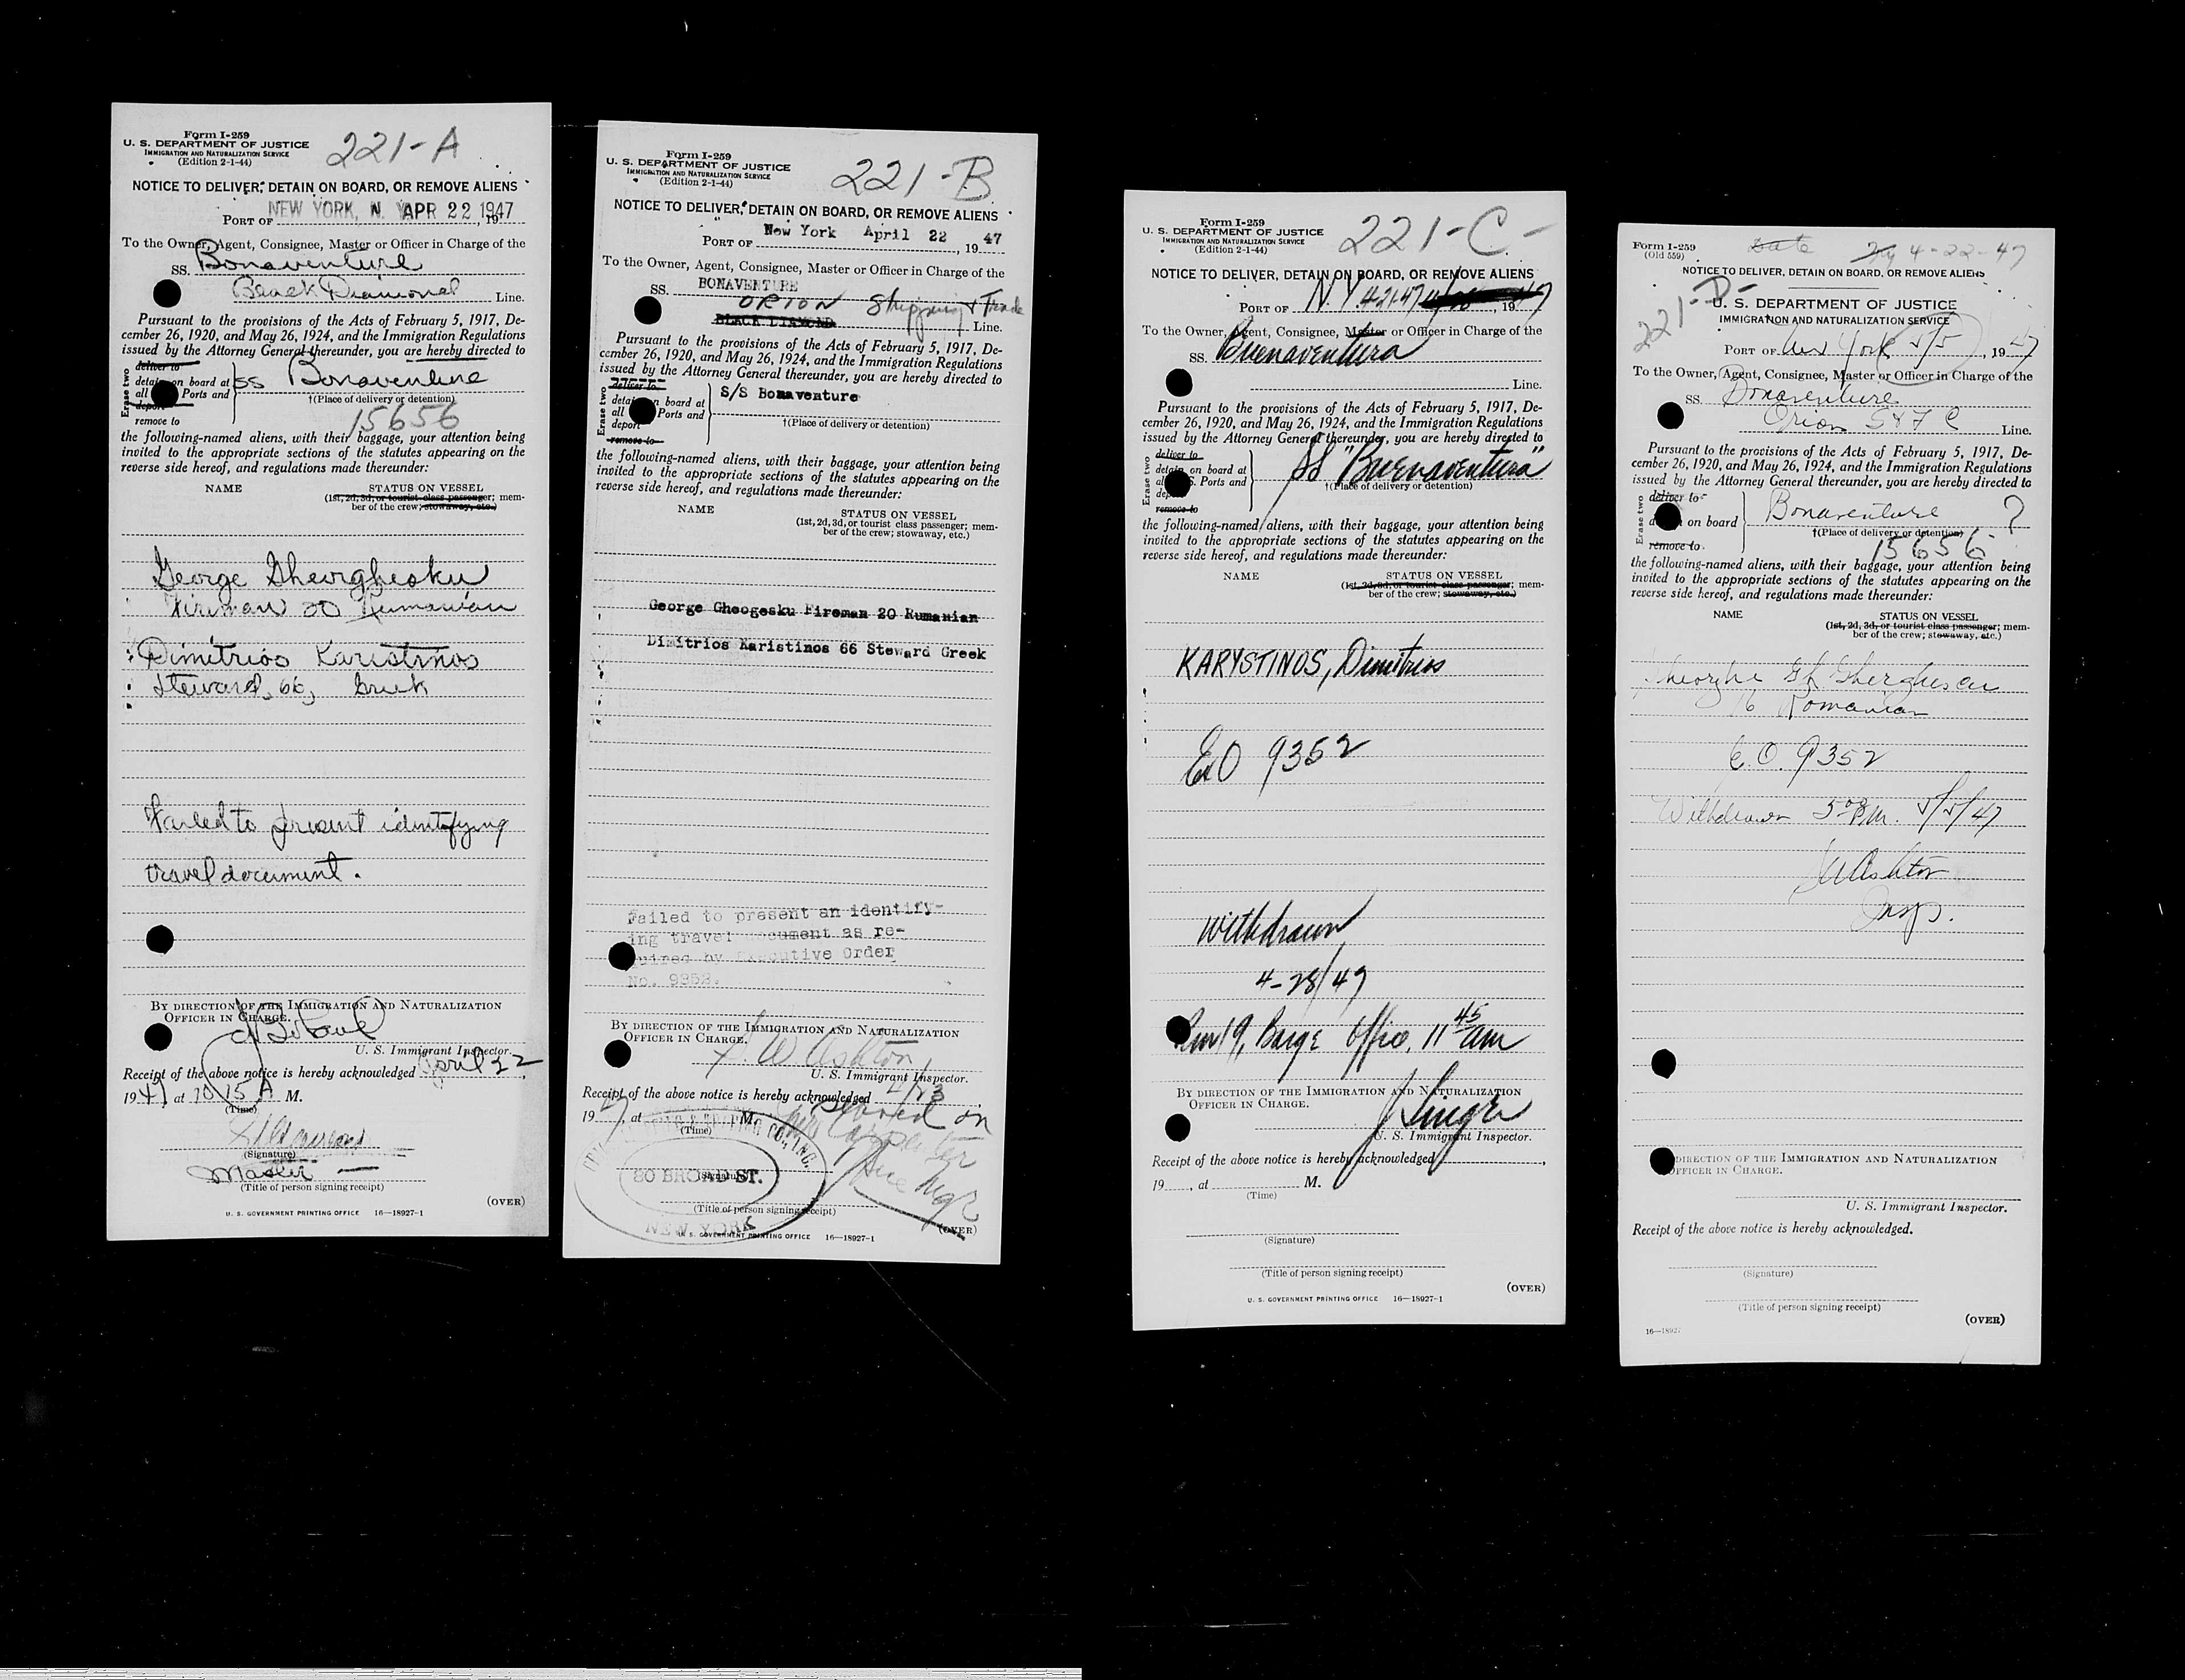 Form I-259
U. S. DEPARTMENT OF JUSTICE
IMMIGRATION AND NATURALIZATION SERVICE
(Edition 2-1-44)
221-A
NOTICE TO DELIVER, DETAIN ON BOARD, OR REMOVE ALIENS
PORT OF NEW YORK, N. Y. APR 22 1947, 19
To the Owner, Agent, Consignee, Master or Officer in Charge of the
SS. Bonaventure
Black Diamond Line.
Pursuant to the provisions of the Acts of February 5, 1917, De-
cember 26, 1920, and May 26, 1924, and the Immigration Regulations
issued by the Attorney General thereunder, you are hereby directed to
Erase two
deliver to
detain on board at
all Ports and
deport
remove to
SS Bonaventure
†(Place of delivery or detention)
15656
the following-named aliens, with their baggage, your attention being
invited to the appropriate sections of the statutes appearing on the
reverse side hereof, and regulations made thereunder:
NAME STATUS ON VESSEL
(1st, 2d, 3d, or tourist class passenger; mem-
ber of the crew; stowaway, etc.)
George Gheorghesku
Fireman 20 Rumanian
Dimitrios Karistinos
Steward, 66, Greek
Failed to present identifying
travel document.
BY DIRECTION OF THE IMMIGRATION AND NATURALIZATION
OFFICER IN CHARGE.
U. S. Immigrant Inspector.
Receipt of the above notice is hereby acknowledged April 22,
1947 at 10 15 A M.
(Time)
(Signature)
Master
(Title of person signing receipt)
(OVER)
U. S. GOVERNMENT PRINTING OFFICE 16—18927-1
Form I-259
U. S. DEPARTMENT OF JUSTICE
IMMIGRATION AND NATURALIZATION SERVICE
(Edition 2-1-44)
221-B
NOTICE TO DELIVER, DETAIN ON BOARD, OR REMOVE ALIENS
PORT OF New York April 22, 19 47
To the Owner, Agent, Consignee, Master or Officer in Charge of the
SS. BONAVENTURE
ORION Shipping & Trade
BLACK DIAMOND Line.
Pursuant to the provisions of the Acts of February 5, 1917, De-
cember 26, 1920, and May 26, 1924, and the Immigration Regulations
issued by the Attorney General thereunder, you are hereby directed to
Erase two
deliver to
detain on board at
all Ports and
deport
remove to
S/S Bonaventure
†(Place of delivery or detention)
the following-named aliens, with their baggage, your attention being
invited to the appropriate sections of the statutes appearing on the
reverse side hereof, and regulations made thereunder:
NAME STATUS ON VESSEL
(1st, 2d, 3d, or tourist class passenger; mem-
ber of the crew; stowaway, etc.)
George Gheogesku Fireman 20 Rumanian
Dimitrios Karistinos 66 Steward Greek
Failed to present an identify-
ing travel document as re-
quired by Executive Order
No. 9352.
BY DIRECTION OF THE IMMIGRATION AND NATURALIZATION
OFFICER IN CHARGE.
J. W. Ashton
U. S. Immigrant Inspector.
Receipt of the above notice is hereby acknowledged 4/23
1947, at M. Served on
(Time)
Miss Carpenter
CO., INC.
80 BROAD ST.
NEW YORK
(Signature)
(Title of person signing receipt)
(OVER)
U. S. GOVERNMENT PRINTING OFFICE 16—18927-1
Form I-259
U. S. DEPARTMENT OF JUSTICE
IMMIGRATION AND NATURALIZATION SERVICE
(Edition 2-1-44)
221-C-
NOTICE TO DELIVER, DETAIN ON BOARD, OR REMOVE ALIENS
PORT OF N.Y 4-21-47, 1947
To the Owner, Agent, Consignee, Master or Officer in Charge of the
SS. Buenaventura
Line.
Pursuant to the provisions of the Acts of February 5, 1917, De-
cember 26, 1920, and May 26, 1924, and the Immigration Regulations
issued by the Attorney General thereunder, you are hereby directed to
Erase two
deliver to
detain on board at
S. Ports and
remove to
SS "Buenaventura"
†(Place of delivery or detention)
the following-named aliens, with their baggage, your attention being
invited to the appropriate sections of the statutes appearing on the
reverse side hereof, and regulations made thereunder:
NAME STATUS ON VESSEL
(1st, 2d, 3d, or tourist class passenger; mem-
ber of the crew; stowaway, etc.)
KARYSTINOS, Dimitrios
EO 9352
Withdrawn
4-28/47
Rm 19, Barge Office, 11 45 am
BY DIRECTION OF THE IMMIGRATION AND NATURALIZATION
OFFICER IN CHARGE.
J Singer
U. S. Immigrant Inspector.
Receipt of the above notice is hereby acknowledged,
19, at M.
(Time)
(Signature)
(Title of person signing receipt)
(OVER)
U. S. GOVERNMENT PRINTING OFFICE 16—18927-1
Form I-259
(Old 559)
Date 4-22-47
NOTICE TO DELIVER, DETAIN ON BOARD, OR REMOVE ALIENS
221-D-
U. S. DEPARTMENT OF JUSTICE
IMMIGRATION AND NATURALIZATION SERVICE
PORT OF New York 5/5, 1947
To the Owner, Agent, Consignee, Master or Officer in Charge of the
SS. Bonaventure
Orion S & T C Line.
Pursuant to the provisions of the Acts of February 5, 1917, De-
cember 26, 1920, and May 26, 1924, and the Immigration Regulations
issued by the Attorney General thereunder, you are hereby directed to
Erase two
deliver to
on board
remove to
Bonaventure ?
†(Place of delivery or detention)
15656
the following-named aliens, with their baggage, your attention being
invited to the appropriate sections of the statutes appearing on the
reverse side hereof, and regulations made thereunder:
NAME STATUS ON VESSEL
(1st, 2d, 3d, or tourist class passenger; mem-
ber of the crew; stowaway, etc.)
Gheorghe Gh. Gherghescu
Romanian
E.O. 9352
Withdrawn 5 00 PM. 5/5/47
JWAshton
Insp.
DIRECTION OF THE IMMIGRATION AND NATURALIZATION
OFFICER IN CHARGE.
U. S. Immigrant Inspector.
Receipt of the above notice is hereby acknowledged.
(Signature)
(Title of person signing receipt)
(OVER)
16—18927